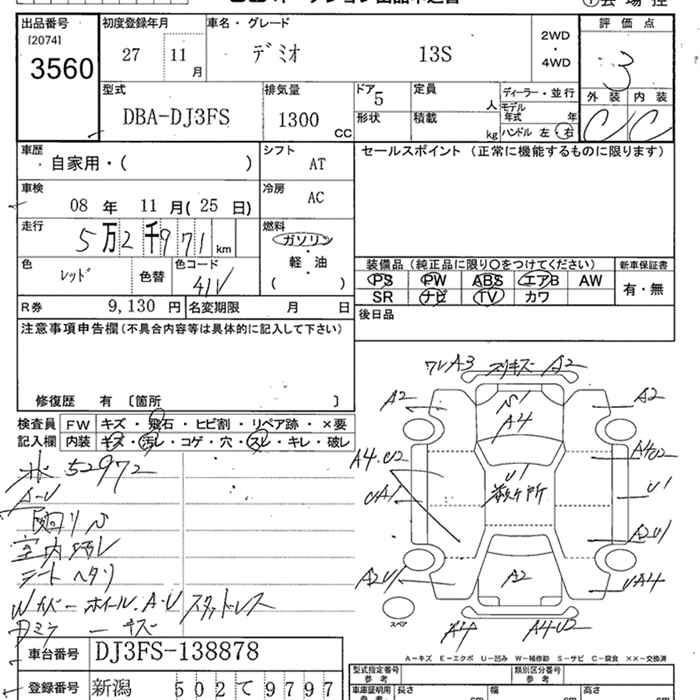 出品番号 初度登録年月 車名・グレード 評価点
[2074]
3560 27 11 月 デミオ 13S 2WD ・ 4WD 3
型式 排気量 ドア 5 定員 人 ディーラー・並行 外装 内装
DBA-DJ3FS 1300 CC 形状 積載 kg モデル年式 年 C C
ハンドル 左・右
車歴 シフト セールスポイント (正常に機能するものに限ります)
自家用・( ) AT
車検 冷房
08 年 11 月( 25 日) AC
走行 燃料
5万2千971 km ガソリン ・ 軽・油 ( )
装備品 (純正品に限り○をつけてください) 新車保証書
色 レッド 色替 色コード 41V PS PW ABS エアB AW 有・無
SR ナビ TV カワ
R券 9,130 円 名変期限 月 日 後日品
注意事項申告欄(不具合内容等は具体的に記入して下さい)
修復歴 有 〔箇所 〕
検査員 FW キズ・飛石・ヒビ割・リペア跡・×要
記入欄 内装 キズ・汚レ・コゲ・穴・スレ・キレ・破レ
ワレA3 スリキズ A2
A2 A4 A2
A4.U2 U1 A4U2
UA1 U1
A2U1 A2 A2U1
UA4
A4 A4U2
スペア
52972
A-U
室内汚レ
シートヘタリ
Wカバー ホイールA-U スタッドレス
A-キズ E-エクボ U-凹み W-補修跡 S-サビ C-腐食 XX-交換済
車台番号 DJ3FS-138878 型式指定番号 参考 類別区分番号 参考
登録番号 新潟 502て9797 車庫証明用 参考 長さ cm 幅 cm 高さ cm